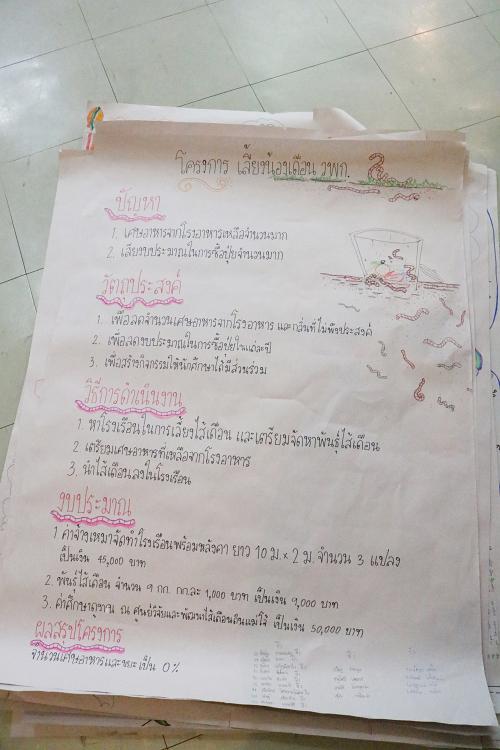 โครงการ เลี้ยงน้องเดือน วพก.
ปัญหา
1. เศษอาหารจากโรงอาหารเหลือจำนวนมาก
2. เสียงบประมาณในการซื้อปุ๋ยจำนวนมาก
วัตถุประสงค์
1. เพื่อลดจำนวนเศษอาหารจากโรงอาหาร และกลิ่นที่ไม่พึงประสงค์
2. เพื่อลดงบประมาณในการซื้อปุ๋ยในแต่ละปี
3. เพื่อสร้างกิจกรรมให้นักศึกษาได้มีส่วนร่วม
วิธีการดำเนินงาน
1. หาโรงเรือนในการเลี้ยงไส้เดือน และเตรียมจัดหาพันธุ์ไส้เดือน
2. เตรียมเศษอาหารที่เหลือจากโรงอาหาร
3. นำไส้เดือนลงในโรงเรือน
งบประมาณ
1. ค่าจ้างเหมาจัดทำโรงเรือนพร้อมหลังคา ยาว 10 ม. x 2 ม. จำนวน 3 แปลง
เป็นเงิน 45,000 บาท
2. พันธุ์ไส้เดือน จำนวน 9 กก. กก.ละ 1,000 บาท เป็นเงิน 9,000 บาท
3. ค่าศึกษาดูงาน ณ ศูนย์วิจัยและพัฒนาไส้เดือนดินแม่โจ้ เป็นเงิน 50,000 บาท
ผลสรุปโครงการ
จำนวนเศษอาหารและขยะเป็น 0%